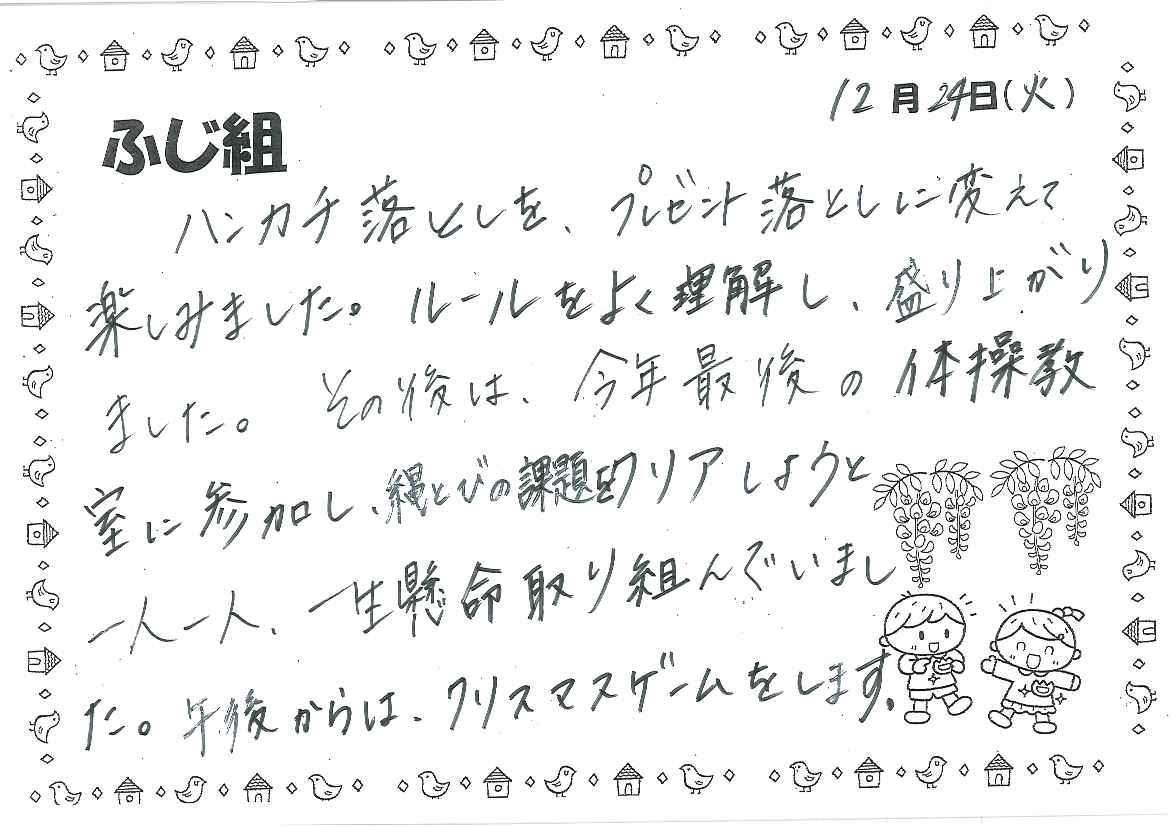 12月24日(火)
ふじ組
ハンカチ落としを、プレゼント落としに変えて
楽しみました。ルールをよく理解し、盛り上がり
ました。その後は、今年最後の体操教
室に参加し、縄とびの課題をクリアしようと
一人一人、一生懸命取り組んでいまし
た。午後からは、クリスマスゲームをします。